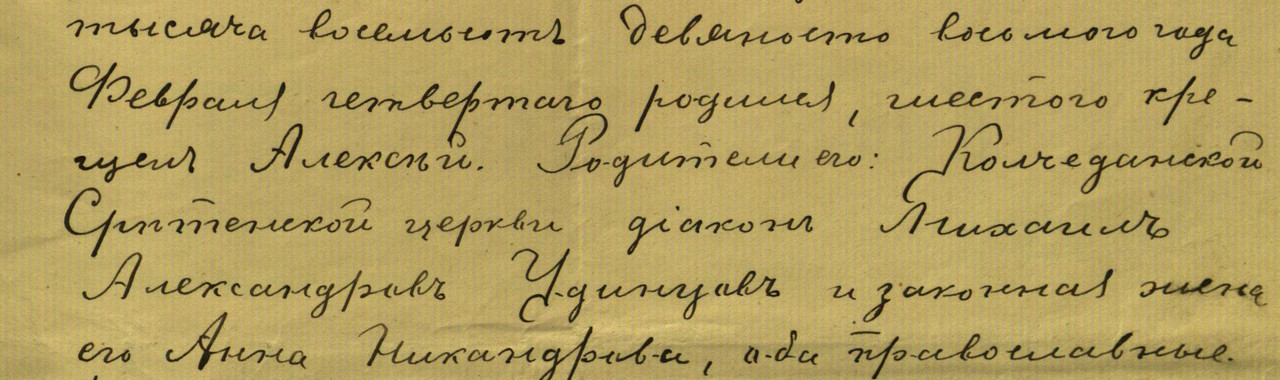 тысяча восемьсотъ девяносто восьмого года
Февраля четвертаго родился, шестого кре-
щенъ Алексѣй. Родители его: Колчеданской
Срѣтенской церкви діаконъ Михаилъ
Александровъ Удинцовъ и законная жена
его Анна Никандрова, оба православные.